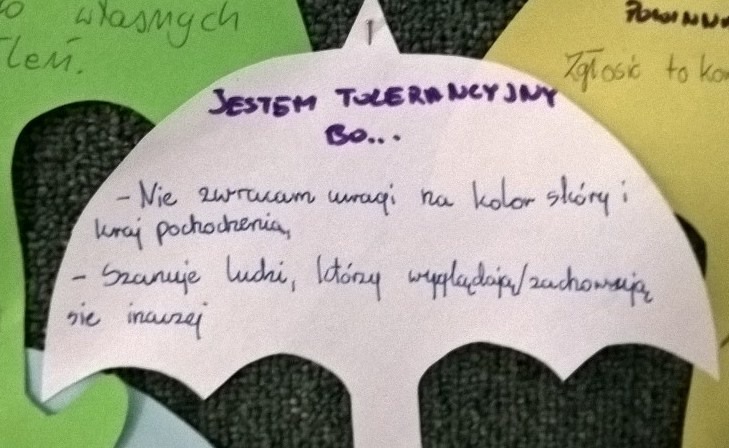 własnych
POWINN
Zgłosić to ko
JESTEM TOLERANCYJNY
BO...
- Nie zwracam uwagi na kolor skóry i
kraj pochodzenia,
- Szanuje ludzi, którzy wyglądają/zachowują
się inaczej